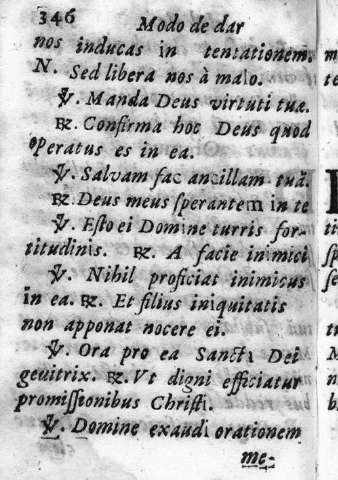 346 Modo de dar
nos inducas in tentationem.
N. Sed libera nos à malo.
℣. Manda Deus virtuti tuæ.
℟. Confirma hoc Deus quod
operatus es in ea.
℣. Salvam fac ancillam tuã.
℟. Deus meus sperantem in te
℣. Eſto ei Domine turris for-
titudinis. ℟. A facie inimici
℣. Nihil proficiat inimicus
in ea. ℟. Et filius iniquitatis
non apponat nocere ei.
℣. Ora pro ea Sancta Dei
gevitrix. ℟. Vt digni efficiatur
promiſſionibus Chriſti.
℣. Domine exaudi orationem
me-